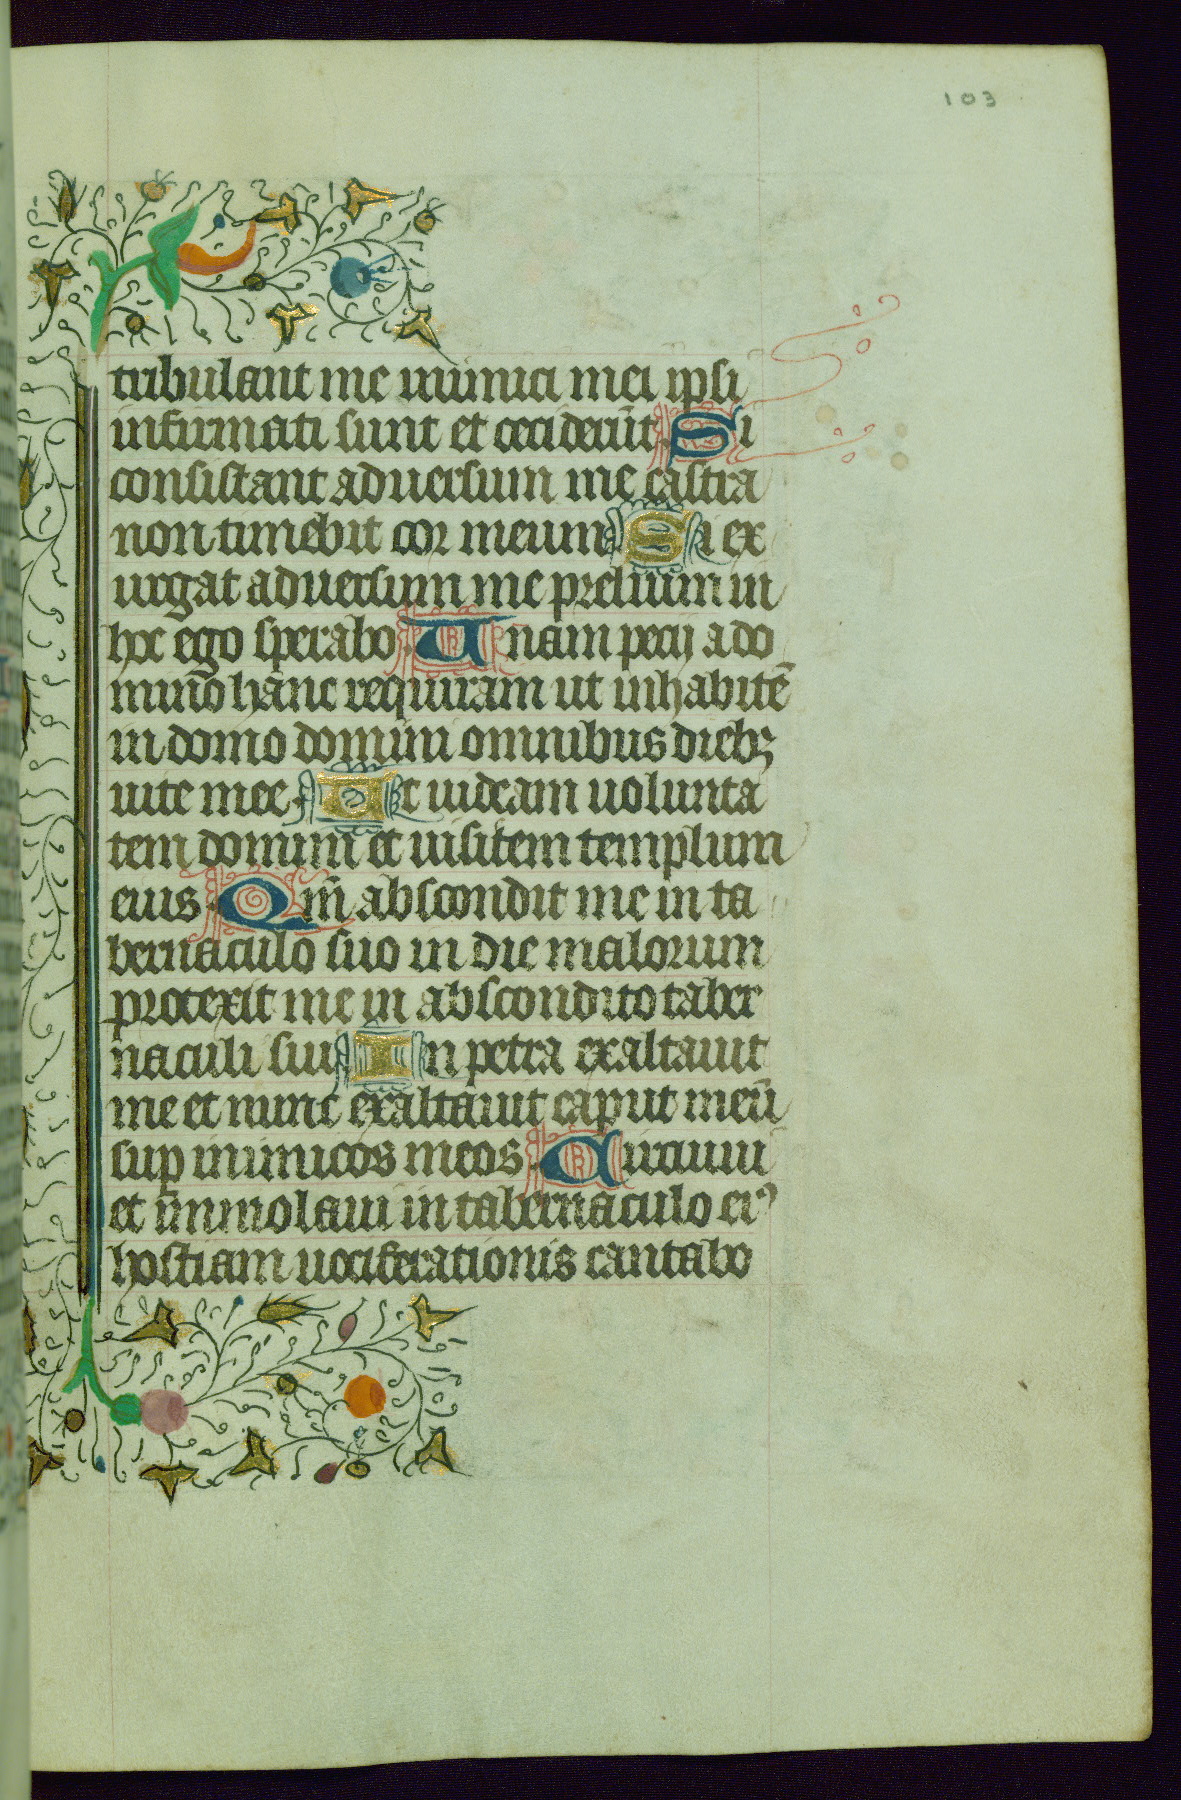 103
tribulant me inimici mei ipsi
infirmati sunt et ceciderūt Si
consistant aduersum me castra
non timebit cor meum Si ex
urgat aduersum me prelium in
hoc ego sperabo Unam pecij a do
mino hanc requiram ut inhabitē
in domo domini omnibus diebꝫ
uite mee Ut uideam uolunta
tem domini et uisitem templum
eius Qm̄ abscondit me in ta
bernaculo suo in die malorum
protexit me in abscondito taber
naculi sui In petra exaltauit
me et nunc exaltauit caput meū
suꝑ inimicos meos Circuiui
et immolaui in tabernaculo eiꝰ
hostiam uociferationis cantabo